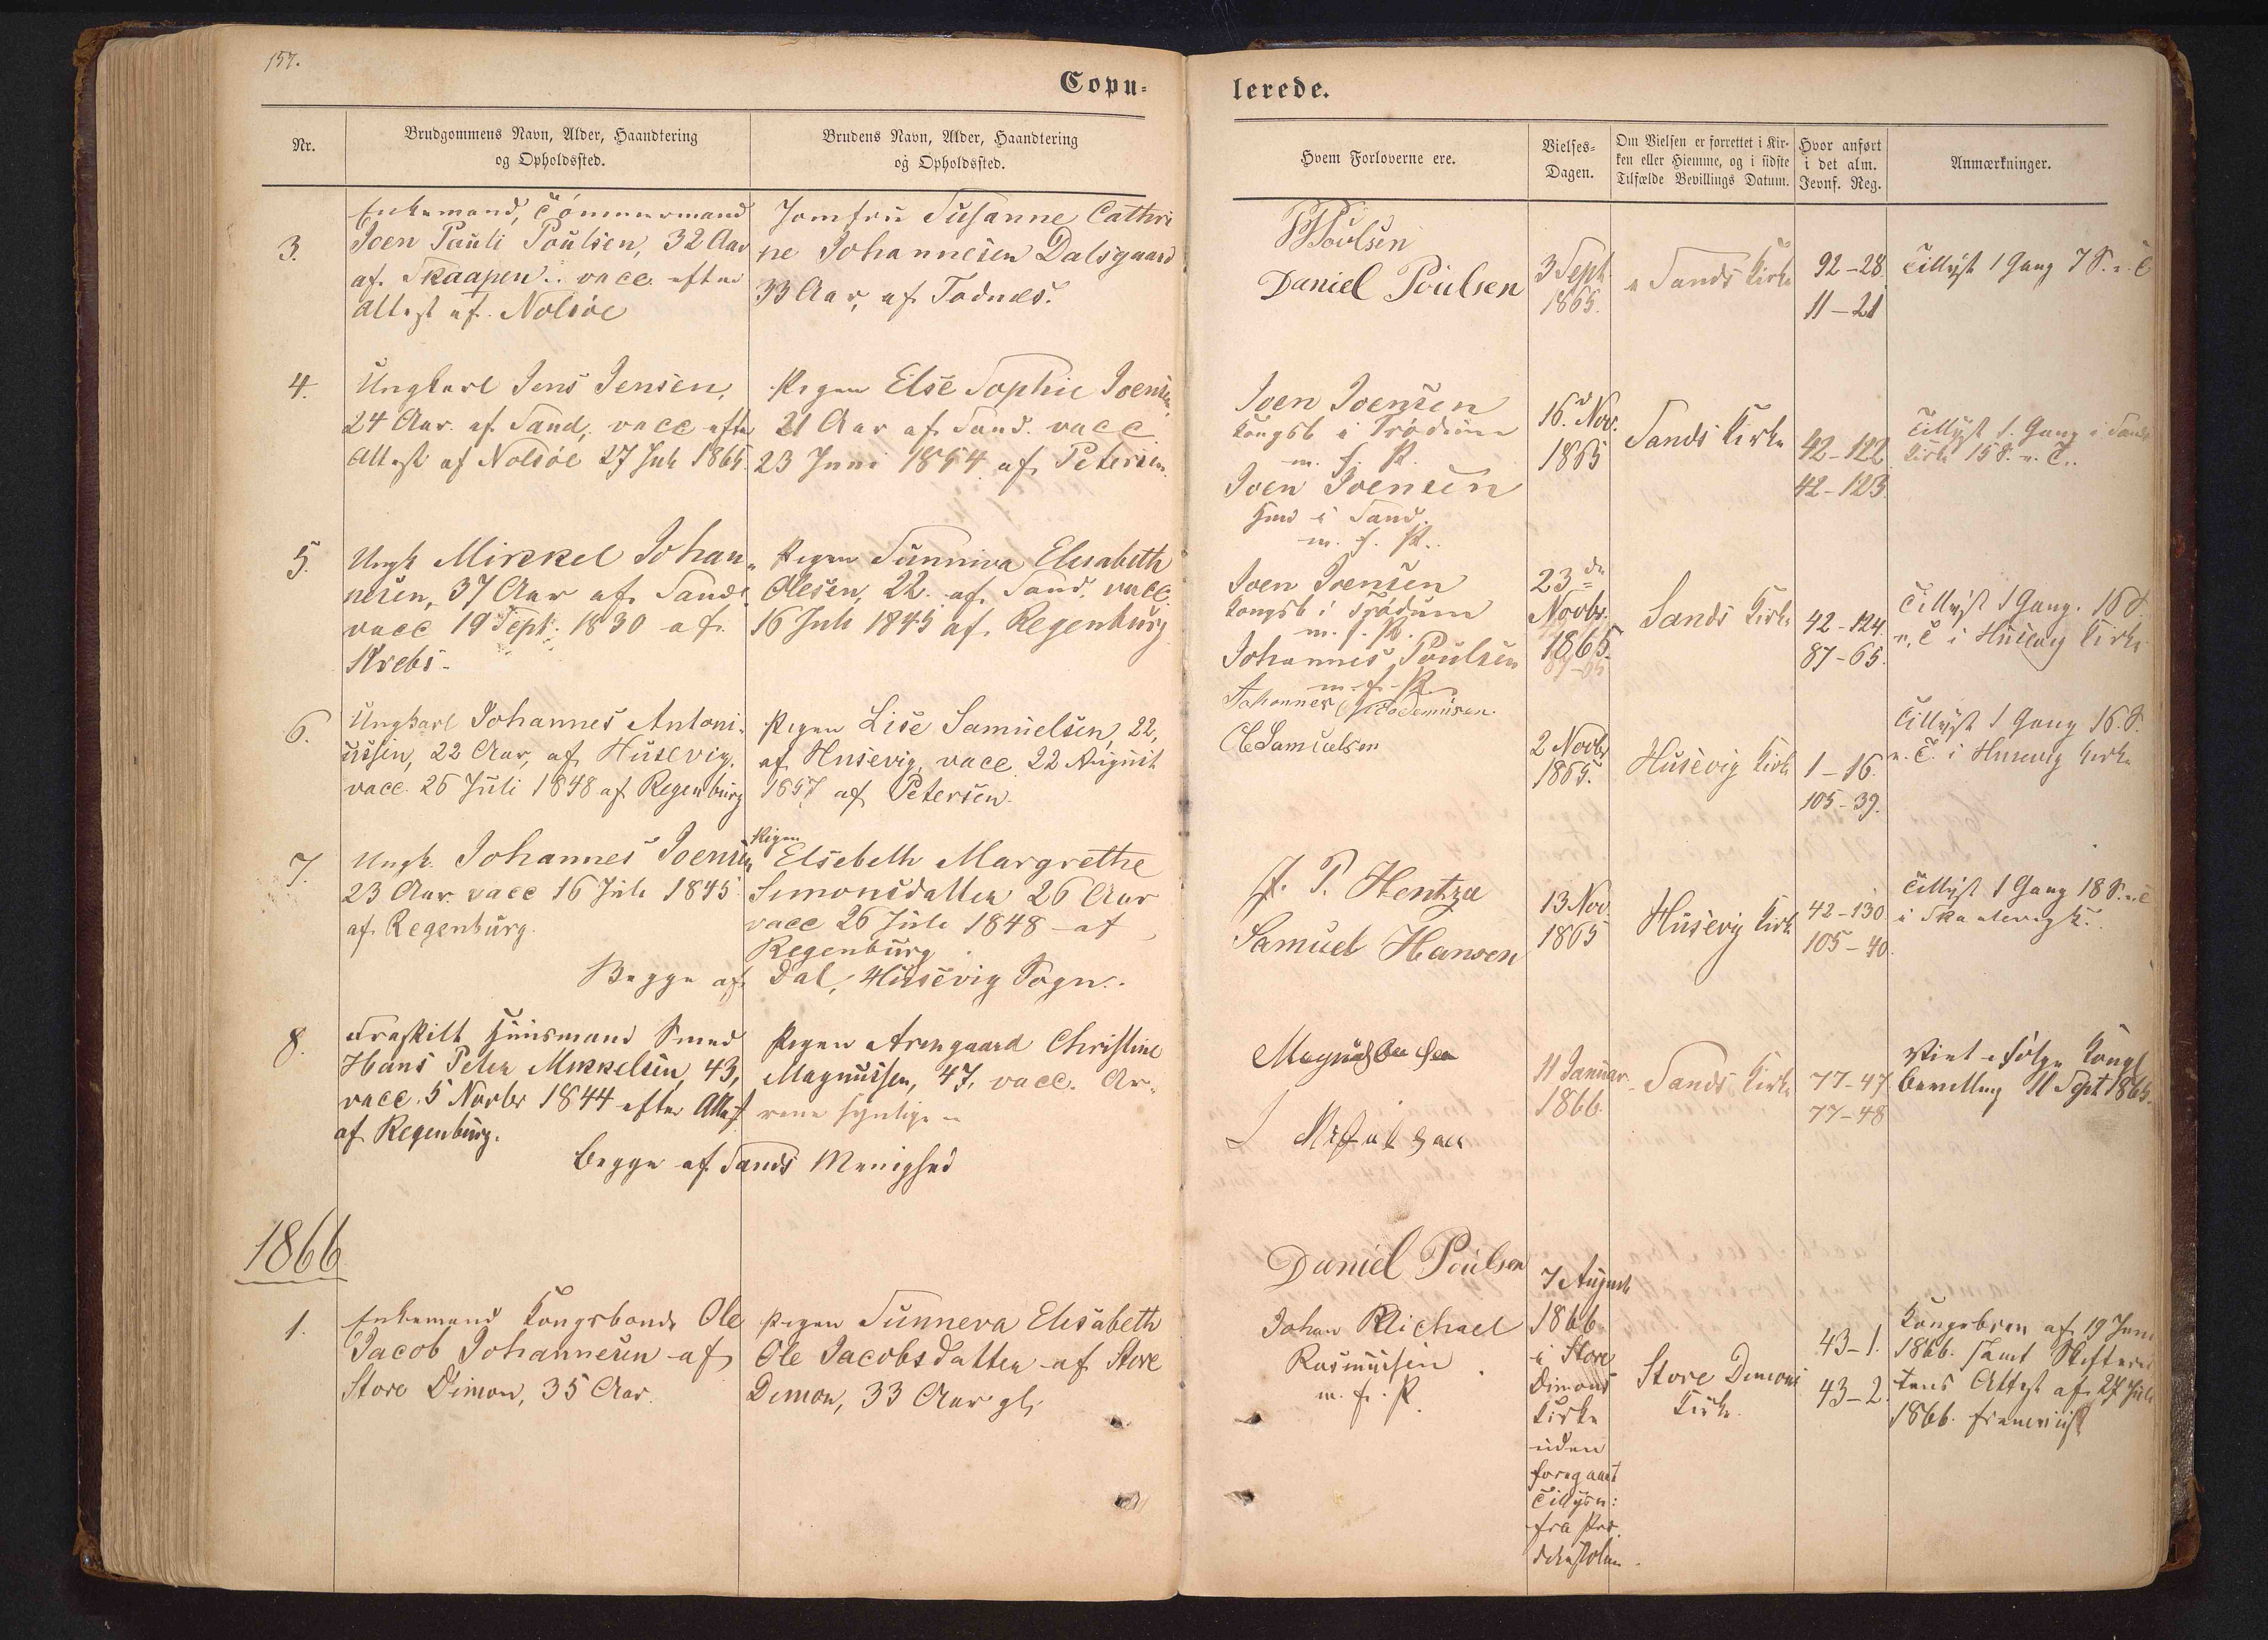 157.
Copu-
lerede.
Nr.
Brudgommens Navn, Alder, Haandtering
og Opholdssted.
Brudens Navn, Alder, Haandtering
og Opholdssted.
Hvem Forloverne ere.
Vielses-
Dagen.
Om Vielsen er forrettet i Kir-
ken eller Hiemme, og i sidste
Tilfælde Bevillings Datum.
Hvor anført
i det alm.
Jevnf. Reg.
Anmærkninger.
3.
Enkemand, Tömmermand
Joen Pauli Poulsen, 32 Aar
af Skaapen. vacc. efter
Attest af Nolsöe
Jomfru Susanne Cathri
ne Johannesen Dalsgaard
33 Aar, af Todnes.
Poulsen
Daniel Poulsen
3 Sept.
1865.
Sands Kirke
92-28
11-21
Tillyst 1 Gang 7 S. e. T
4.
Ungkarl Jens Jensen,
24 Aar. af Sand, vacc efter
Attest af Nolsöe 27 Juli 1865.
Pigen Else Sophie Joensen,
21 Aar af Sand. vacc
23 Juni 1854 af Petersen.
Joen Joensen
Kongsb i Trödum
m. f. P.
Joen Joensen
i Sand.
m. f. P.
16. Nov.
1865
Sands Kirke
42-122
42-123
Tillyst 1. Gang i Sands
Kirke 15 S. e. T.
5.
Ungk Mikkel Johan-
nesen, 37 Aar af Sand.
vacc 19 Sept. 1830 af
Krebs-
Pigen Sunniva Elisabeth
Olesen, 22. af Sand. vacc.
16 Juli 1845 af Regenburg
Joen Joensen
Kongsb i Trödum
m. f. P.
Johannes Poulsen
m. f. P.
23de
Novbr.
1865.
Sands Kirke
42-124.
87-65.
Tillyst 1 Gang. 16 S.
e. T i Husevig Kirke
6.
Ungkarl Johannes Antoni-
ussen, 22 Aar, af Husevig.
vacc. 26 Juli 1848 af Regenburg
Pigen Lise Samuelsen, 22,
af Husevig, vacc. 22 August
1857 af Petersen.
Johannes
Ole Samuelsen
2 Novbr
1865.
Husevig Kirke
1-16.
105-39.
Tillyst 1 Gang 16. S.
e. T. i Husevig Kirke
7.
Ungk. Johannes Joensen
23 Aar. vacc 16 Juli 1845
af Regenburg.
Pigen
Elsebeth Margrethe
Simonsdatter 26 Aar
vacc 26 Juli 1848 - af
Regenburg.
Begge af Dal, Husevig Sogn.
J. P. Hentza
Samuel Hansen
13 Nov.
1865
Husevig Kirke
42-130
105-40.
Tillyst 1 Gang 18 S. e. T
i Skaalevig K.
8.
Fraskilt Huusmand Smed
Hans Peter Mikkelsen, 43,
vacc. 5 Novbr 1844 efter Attest
af Regenburg.
Pigen Armgaard Christine
Magnussen, 47, vacc. Ar-
rene synlige
Begge af Sands Menighed
11 Januar
1866.
Sands Kirke
77-47.
77-48
Viet i Fölge Kongl
Bevilling 11 Sept 1865.
1866
1.
Enkemand Kongsbonde Ole
Jacob Johannesen af
Store Dimon, 35 Aar.
Pigen Sunneva Elisabeth
Ole Jacobsdatter af Store
Dimon, 33 Aar gl.
Daniel Poulsen
Johan Michael
Rasmussen
m. f. P.
7 August
1866
i Store
Dimons
Kirke
uden
foregaaet
Tillysn:
fra Præ-
dikestolen
Store Dimons
Kirke.
43-1.
43-2.
Kongebrev af 19 Juni
1866. samt Skifteret
tens Attest af 27 Juli
1866. fremviist